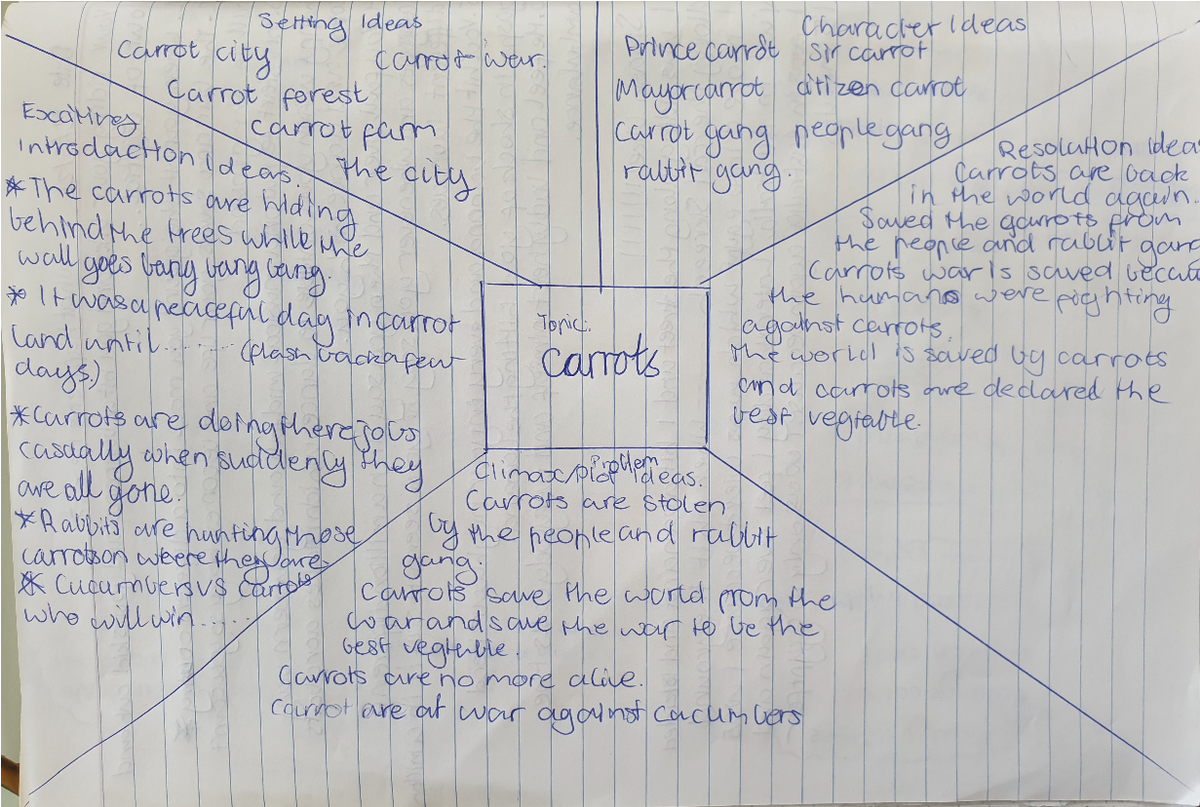 Setting Ideas
Carrot city carrot war.
Carrot forest
carrot farm
The city
Character Ideas
Prince carrot sir carrot
Mayor carrot citizen carrot
Carrot gang people gang
rabbit gang.
Exciting
introdaction Ideas.
* The carrots are hiding
behind the trees while the
wall goes bang bang bang.
* It was a peaceful day in carrot
land until......... (flash back a few
days.)
* Carrots are doing there jobs
casually when suddenly they
are all gone.
* Rabbits are hunting those
carrots on where they are
* Cucumbers vs carrots
who will win......
Topic:
Carrots
Resolution Idea
Carrots are back
in the world again.
Saved the carrots from
the people and rabbit gang
Carrots war is saved becau
the humans were fighting
against carrots.
The world is saved by carrots
and carrots are declared the
best vegtable.
Climax/Plot Problem ideas.
Carrots are stolen
by the people and rabbit
gang.
Carrots save the world from the
war and save the war to be the
best vegtable.
Carrots are no more alive.
Carrot are at war against cacumbers